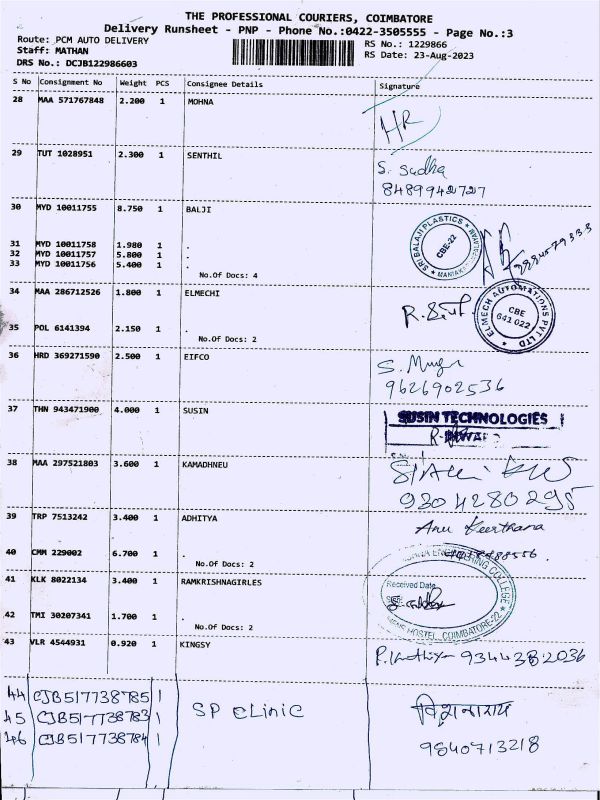 THE PROFESSIONAL COURIERS, COIMBATORE
Delivery Runsheet - PNP - Phone No.:0422-3505555 - Page No.:3
Route: PCM AUTO DELIVERY
RS No.: 1229866
Staff: MATHAN
RS Date: 23-Aug-2023
DRS No.: DCJB122986603
S No Consignment No Weight PCS Consignee Details Signature
28 MAA 571767848 2.200 1 MOHNA
HR
29 TUT 1028951 2.300 1 SENTHIL
S. Sudha
8489942727
30 MYD 10011755 8.750 1 BALJI
SRI BALAN PLASTICS
CBE-22
31 MYD 10011758 1.980 1 .
32 MYD 10011757 5.800 1 .
33 MYD 10011756 5.400 1 .
No.Of Docs: 4
34 MAA 286712526 1.800 1 ELMECHI
ELMECH AUTOMATIONS PVT LTD
CBE
641 022
35 POL 6141394 2.150 1 .
No.Of Docs: 2
36 HRD 369271590 2.500 1 EIFCO
9626902536
37 THN 943471900 4.000 1 SUSIN
SUSIN TECHNOLOGIES
INWARD
38 MAA 297521803 3.600 1 KAMADHNEU
9304280295
39 TRP 7513242 3.400 1 ADHITYA
Anu Keerthana
40 CMM 229002 6.700 1 .
No.Of Docs: 2
41 KLK 8022134 3.400 1 RAMKRISHNAGIRLES
ENGINEERING COLLEGE
Received Date
HOSTEL, COIMBATORE-22
42 TMI 30207341 1.700 1 .
No.Of Docs: 2
43 VLR 4544931 0.920 1 KINGSY
9344382036
44 CJB517738785 1 SP CLinic
45 CJB517738783 1
46 CJB517738784 1
9840713218